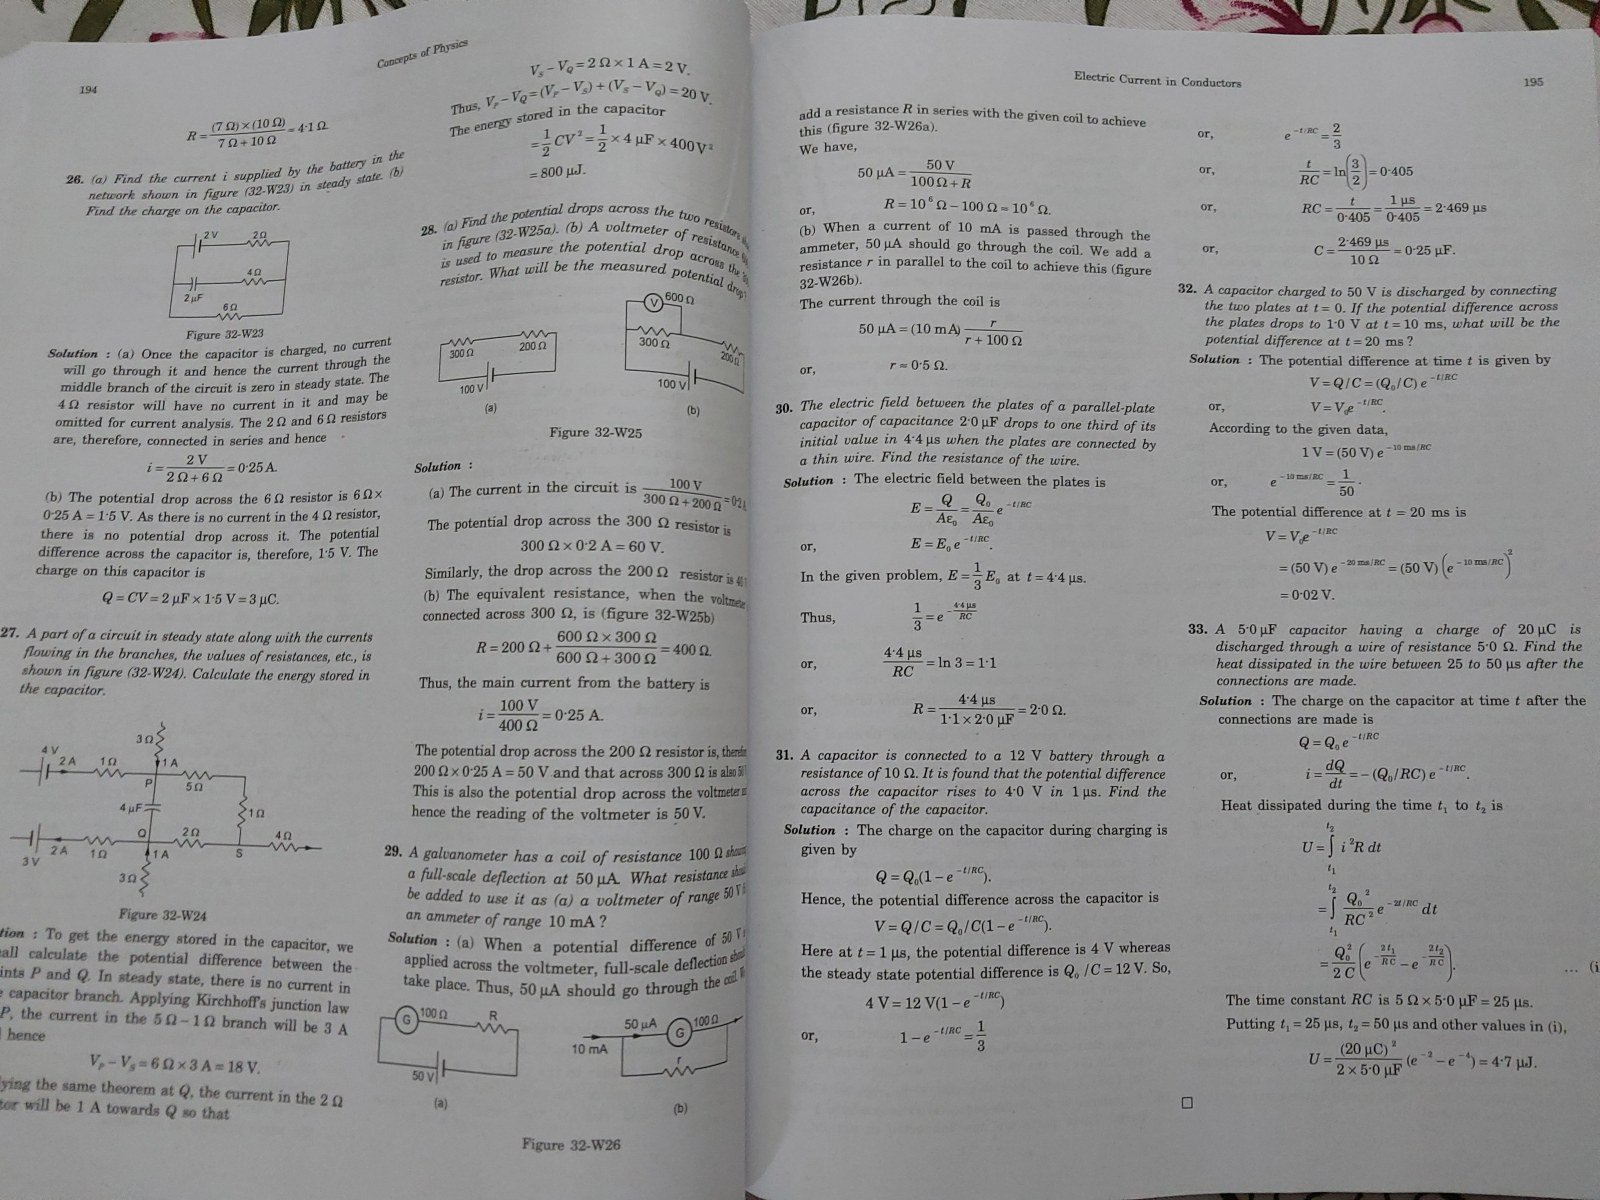 194
Concepts of Physics
R = (7 Ω) × (10 Ω) / 7 Ω + 10 Ω = 4·1 Ω.
26. (a) Find the current i supplied by the battery in the
network shown in figure (32-W23) in steady state. (b)
Find the charge on the capacitor.
2 V 2 Ω
4 Ω
2 μF
6 Ω
Figure 32-W23
Solution : (a) Once the capacitor is charged, no current
will go through it and hence the current through the
middle branch of the circuit is zero in steady state. The
4 Ω resistor will have no current in it and may be
omitted for current analysis. The 2 Ω and 6 Ω resistors
are, therefore, connected in series and hence
i = 2 V / 2 Ω + 6 Ω = 0·25 A.
(b) The potential drop across the 6 Ω resistor is 6 Ω ×
0·25 A = 1·5 V. As there is no current in the 4 Ω resistor,
there is no potential drop across it. The potential
difference across the capacitor is, therefore, 1·5 V. The
charge on this capacitor is
Q = CV = 2 μF × 1·5 V = 3 μC.
27. A part of a circuit in steady state along with the currents
flowing in the branches, the values of resistances, etc., is
shown in figure (32-W24). Calculate the energy stored in
the capacitor.
3 Ω
4 V 2 A 1 Ω 1 A
P 5 Ω
4 μF 1 Ω
Q 2 Ω 4 Ω
3 V 2 A 1 Ω 1 A S
3 Ω
Figure 32-W24
tion : To get the energy stored in the capacitor, we
all calculate the potential difference between the
ints P and Q. In steady state, there is no current in
e capacitor branch. Applying Kirchhoff's junction law
P, the current in the 5 Ω – 1 Ω branch will be 3 A
hence
V_P – V_S = 6 Ω × 3 A = 18 V.
lying the same theorem at Q, the current in the 2 Ω
tor will be 1 A towards Q so that
V_S – V_Q = 2 Ω × 1 A = 2 V.
Thus, V_P – V_Q = (V_P – V_S) + (V_S – V_Q) = 20 V.
The energy stored in the capacitor
= 1/2 CV² = 1/2 × 4 μF × 400 V²
= 800 μJ.
28. (a) Find the potential drops across the two resistors
in figure (32-W25a). (b) A voltmeter of resistance
is used to measure the potential drop across the
resistor. What will be the measured potential drop
300 Ω 200 Ω
100 V
(a)
V 600 Ω
300 Ω 200 Ω
100 V
(b)
Figure 32-W25
Solution :
(a) The current in the circuit is 100 V / 300 Ω + 200 Ω = 0·2 A
The potential drop across the 300 Ω resistor is
300 Ω × 0·2 A = 60 V.
Similarly, the drop across the 200 Ω resistor is 40
(b) The equivalent resistance, when the voltmeter
connected across 300 Ω, is (figure 32-W25b)
R = 200 Ω + 600 Ω × 300 Ω / 600 Ω + 300 Ω = 400 Ω.
Thus, the main current from the battery is
i = 100 V / 400 Ω = 0·25 A.
The potential drop across the 200 Ω resistor is, therefo
200 Ω × 0·25 A = 50 V and that across 300 Ω is also 50
This is also the potential drop across the voltmeter
hence the reading of the voltmeter is 50 V.
29. A galvanometer has a coil of resistance 100 Ω show
a full-scale deflection at 50 μA. What resistance
be added to use it as (a) a voltmeter of range 50 V
an ammeter of range 10 mA ?
Solution : (a) When a potential difference of 50 V
applied across the voltmeter, full-scale deflection
take place. Thus, 50 μA should go through the coil.
G 100 Ω R
50 V
(a)
50 μA G 100 Ω
10 mA
r
(b)
Figure 32-W26
Electric Current in Conductors
195
add a resistance R in series with the given coil to achieve
this (figure 32-W26a).
We have,
50 μA = 50 V / 100 Ω + R
or, R = 10⁶ Ω – 100 Ω ≈ 10⁶ Ω.
(b) When a current of 10 mA is passed through the
ammeter, 50 μA should go through the coil. We add a
resistance r in parallel to the coil to achieve this (figure
32-W26b).
The current through the coil is
50 μA = (10 mA) r / r + 100 Ω
or, r ≈ 0·5 Ω.
30. The electric field between the plates of a parallel-plate
capacitor of capacitance 2·0 μF drops to one third of its
initial value in 4·4 μs when the plates are connected by
a thin wire. Find the resistance of the wire.
Solution : The electric field between the plates is
E = Q/Aε₀ = Q₀/Aε₀ e^(–t/RC)
or, E = E₀ e^(–t/RC).
In the given problem, E = 1/3 E₀ at t = 4·4 μs.
Thus, 1/3 = e^(–4·4 μs/RC)
or, 4·4 μs / RC = ln 3 = 1·1
or, R = 4·4 μs / 1·1 × 2·0 μF = 2·0 Ω.
31. A capacitor is connected to a 12 V battery through a
resistance of 10 Ω. It is found that the potential difference
across the capacitor rises to 4·0 V in 1 μs. Find the
capacitance of the capacitor.
Solution : The charge on the capacitor during charging is
given by
Q = Q₀(1 – e^(–t/RC)).
Hence, the potential difference across the capacitor is
V = Q/C = Q₀/C(1 – e^(–t/RC)).
Here at t = 1 μs, the potential difference is 4 V whereas
the steady state potential difference is Q₀/C = 12 V. So,
4 V = 12 V(1 – e^(–t/RC))
or, 1 – e^(–t/RC) = 1/3
or, e^(–t/RC) = 2/3
or, t/RC = ln(3/2) = 0·405
or, RC = t/0·405 = 1 μs/0·405 = 2·469 μs
or, C = 2·469 μs / 10 Ω = 0·25 μF.
32. A capacitor charged to 50 V is discharged by connecting
the two plates at t = 0. If the potential difference across
the plates drops to 1·0 V at t = 10 ms, what will be the
potential difference at t = 20 ms ?
Solution : The potential difference at time t is given by
V = Q/C = (Q₀/C) e^(–t/RC)
or, V = V₀e^(–t/RC).
According to the given data,
1 V = (50 V) e^(–10 ms/RC)
or, e^(–10 ms/RC) = 1/50.
The potential difference at t = 20 ms is
V = V₀e^(–t/RC)
= (50 V) e^(–20 ms/RC) = (50 V) (e^(–10 ms/RC))²
= 0·02 V.
33. A 5·0 μF capacitor having a charge of 20 μC is
discharged through a wire of resistance 5·0 Ω. Find the
heat dissipated in the wire between 25 to 50 μs after the
connections are made.
Solution : The charge on the capacitor at time t after the
connections are made is
Q = Q₀ e^(–t/RC)
or, i = dQ/dt = – (Q₀/RC) e^(–t/RC).
Heat dissipated during the time t₁ to t₂ is
U = ∫_t₁^t₂ i²R dt
= ∫_t₁^t₂ Q₀²/RC² e^(–2t/RC) dt
= Q₀²/2C (e^(–2t₁/RC) – e^(–2t₂/RC)). ... (i
The time constant RC is 5 Ω × 5·0 μF = 25 μs.
Putting t₁ = 25 μs, t₂ = 50 μs and other values in (i),
U = (20 μC)² / 2 × 5·0 μF (e⁻² – e⁻⁴) = 4·7 μJ.